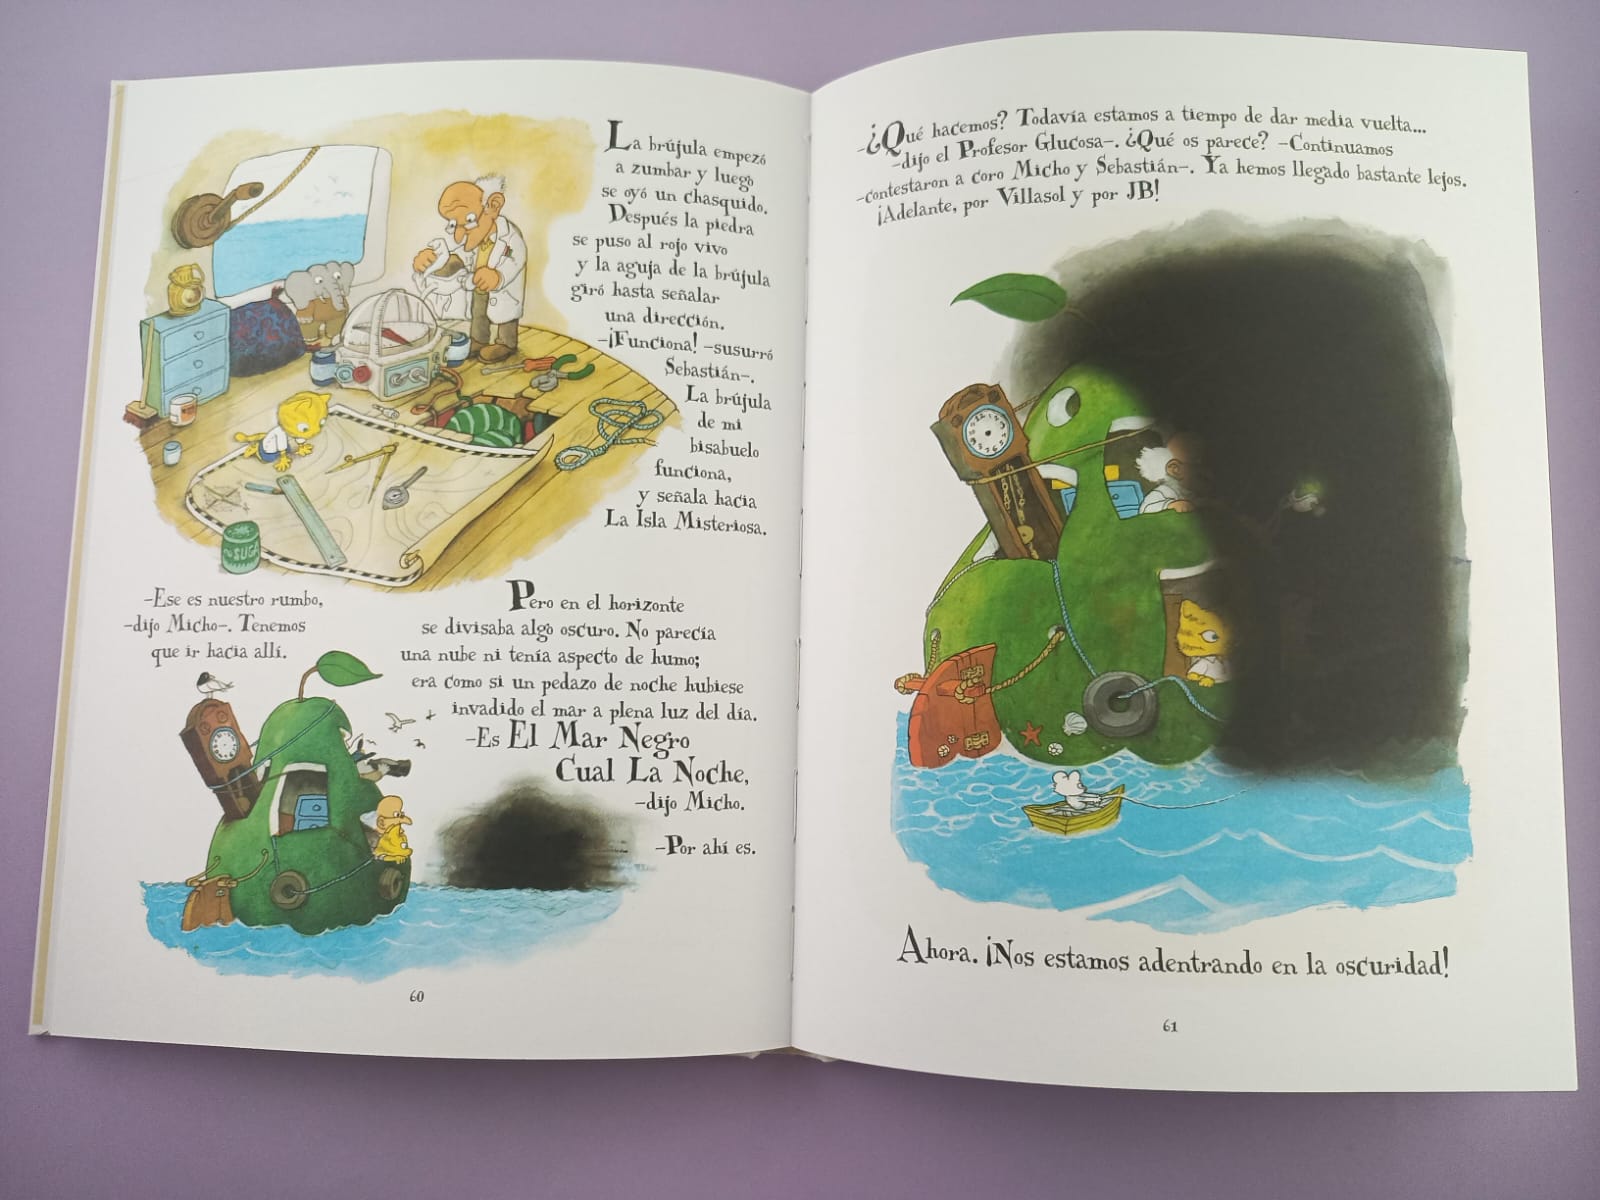 La brújula empezó
a zumbar y luego
se oyó un chasquido.
Después la piedra
se puso al rojo vivo
y la aguja de la brújula
giró hasta señalar
una dirección.
-¡Funciona! -susurró
Sebastián-.
La brújula
de mi
bisabuelo
funciona,
y señala hacia
La Isla Misteriosa.
SUGA
-Ese es nuestro rumbo,
-dijo Micho-. Tenemos
que ir hacia allí.
Pero en el horizonte
se divisaba algo oscuro. No parecía
una nube ni tenía aspecto de humo;
era como si un pedazo de noche hubiese
invadido el mar a plena luz del día.
-Es El Mar Negro
Cual La Noche,
-dijo Micho.
-Por ahí es.
60
-¿Qué hacemos? Todavía estamos a tiempo de dar media vuelta...
-dijo el Profesor Glucosa-. ¿Qué os parece? -Continuamos
-contestaron a coro Micho y Sebastián-. Ya hemos llegado bastante lejos.
¡Adelante, por Villasol y por JB!
Ahora. ¡Nos estamos adentrando en la oscuridad!
61